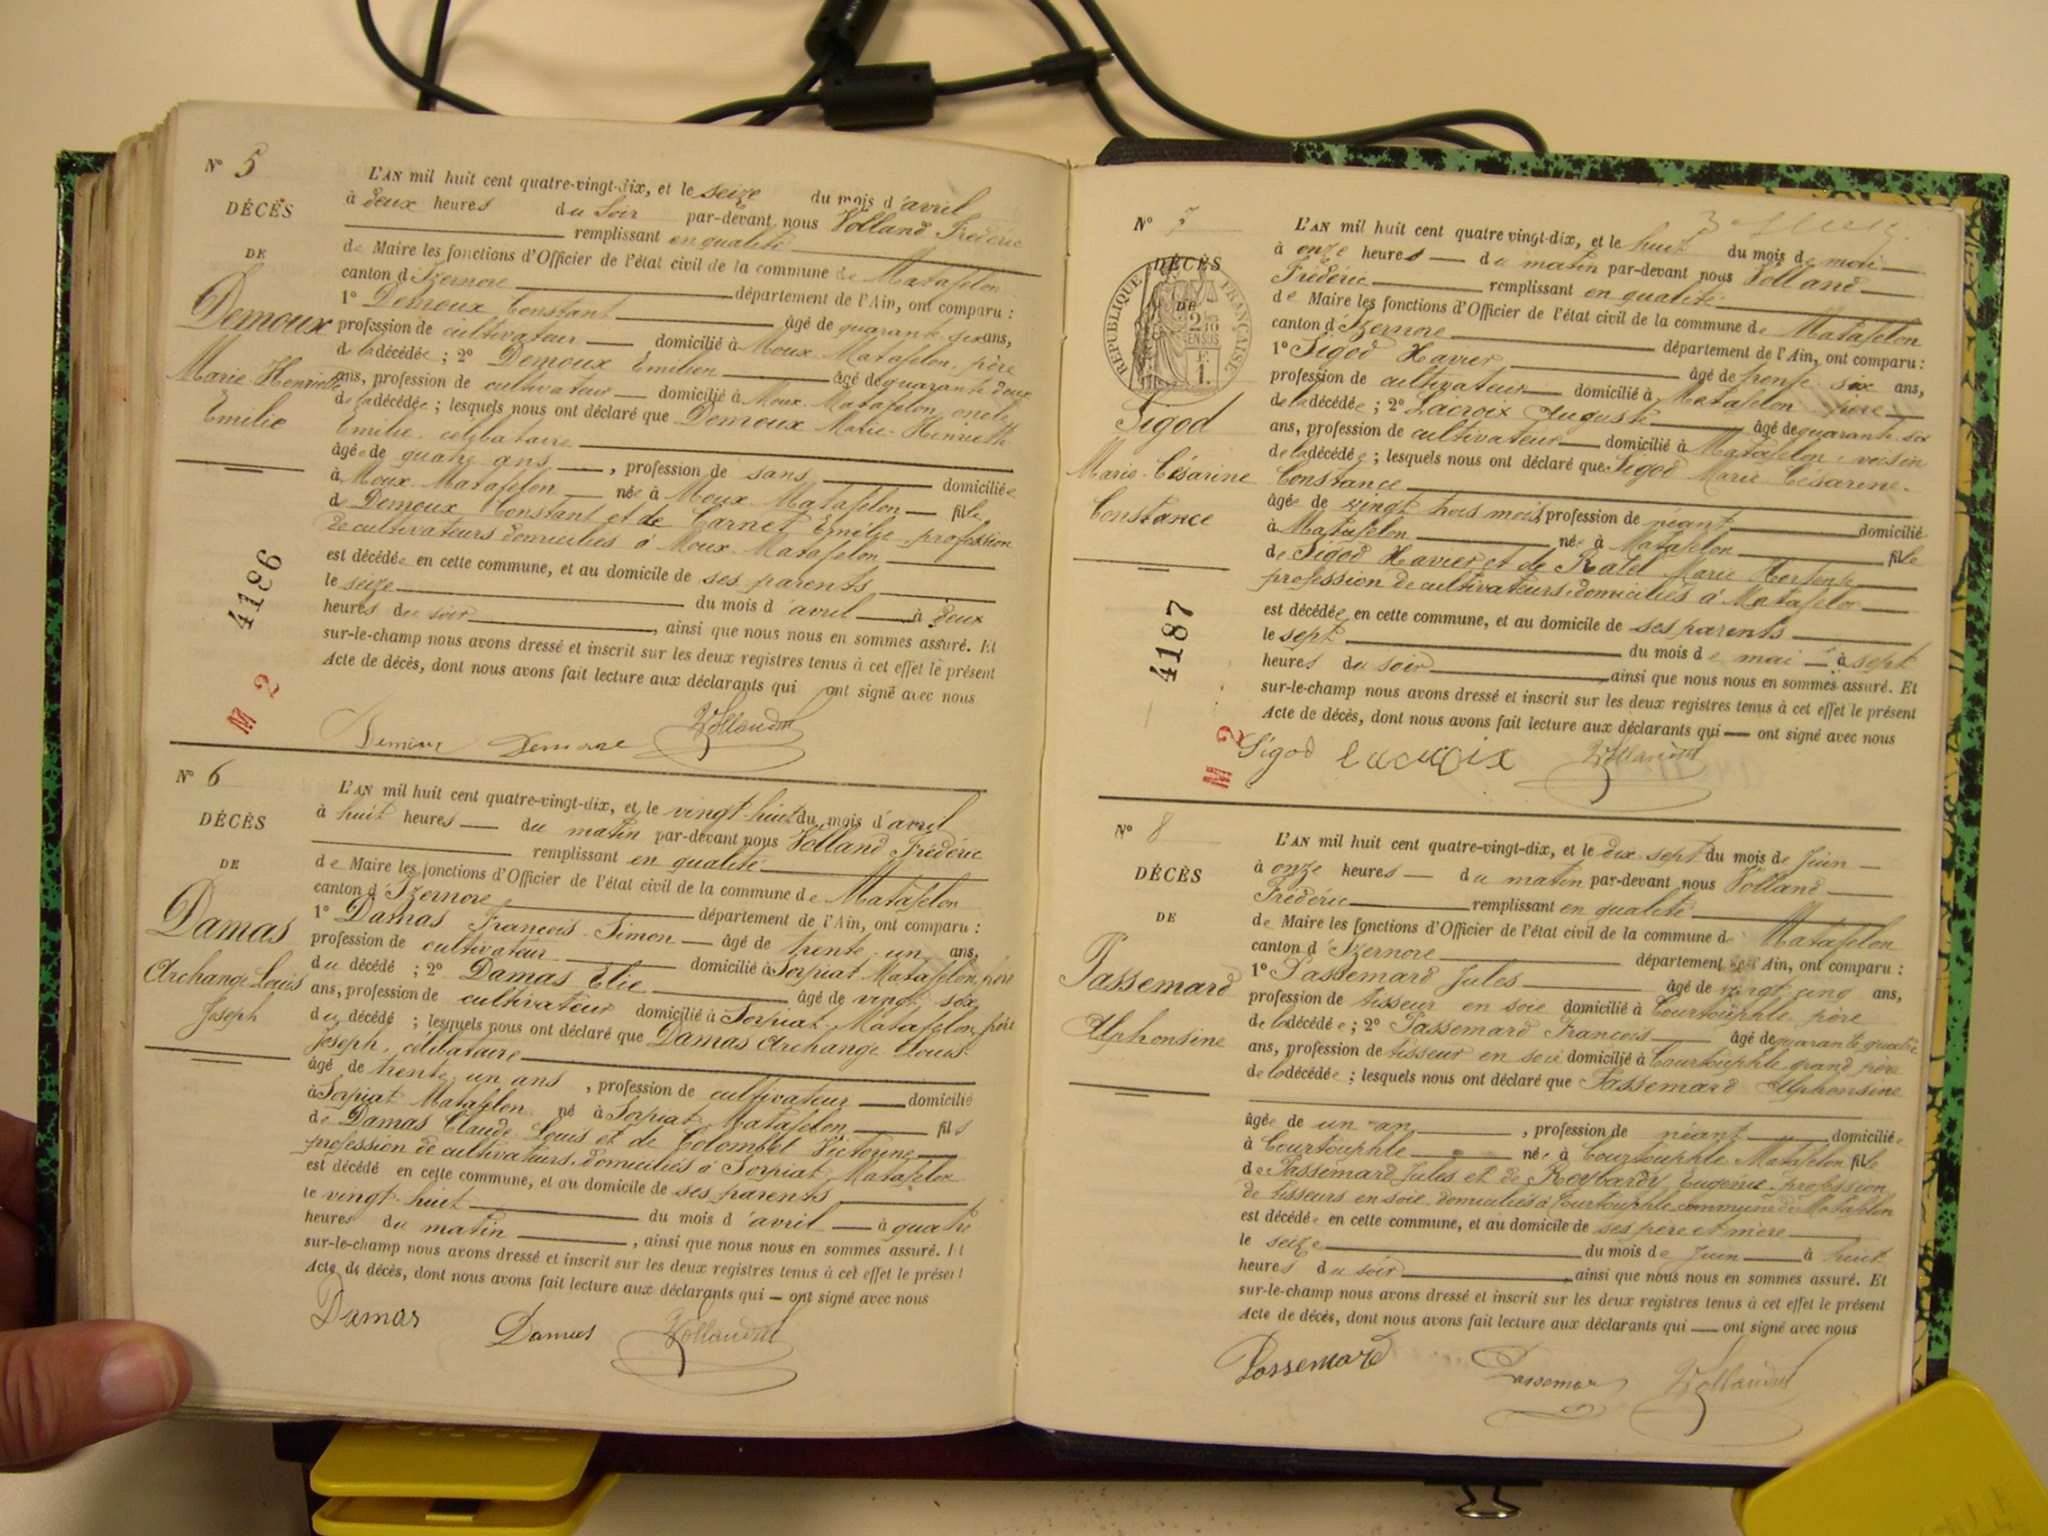 N° 5
DÉCÈS
DE
Demoux
Marie-Henriette
Emilie
4186
M 2
L'AN mil huit cent quatre-vingt-dix, et le seize du mois d'avril
à deux heures du soir par-devant nous Volland Frédéric
remplissant en qualité
de Maire les fonctions d'Officier de l'état civil de la commune de Matafelon
canton d'Izernore département de l'Ain, ont comparu :
1° Demoux Constant âgé de quarante six ans,
profession de cultivateur domicilié à Moux Matafelon, père
de la décédée ; 2° Demoux Emilien âgé de quarante deux
ans, profession de cultivateur domicilié à Moux-Matafelon, oncle
de la décédée ; lesquels nous ont déclaré que Demoux Marie-Henriette
Emilie, célibataire
âgée de quatre ans, profession de sans domiciliée
à Moux-Matafelon née à Moux-Matafelon fille
de Demoux Constant et de Carnet Emilie, profession
de cultivateurs domiciliés à Moux-Matafelon
est décédée en cette commune, et au domicile de ses parents
le seize du mois d'avril à deux
heures du soir, ainsi que nous nous en sommes assuré. Et
sur-le-champ nous avons dressé et inscrit sur les deux registres tenus à cet effet le présent
Acte de décès, dont nous avons fait lecture aux déclarants qui ont signé avec nous
Demoux Demoux Volland
N° 6
DÉCÈS
DE
Damas
Archange Louis
Joseph
L'AN mil huit cent quatre-vingt-dix, et le vingt-huit du mois d'avril
à huit heures du matin par-devant nous Volland Frédéric
remplissant en qualité
de Maire les fonctions d'Officier de l'état civil de la commune de Matafelon
canton d'Izernore département de l'Ain, ont comparu :
1° Damas François-Simon âgé de trente un ans,
profession de cultivateur domicilié à Sorpiat Matafelon, père
du décédé ; 2° Damas Elie âgé de vingt six
ans, profession de cultivateur domicilié à Sorpiat-Matafelon, père
du décédé ; lesquels nous ont déclaré que Damas Archange Louis-
Joseph, célibataire
âgé de trente un ans, profession de cultivateur domicilié
à Sorpiat Matafelon né à Sorpiat Matafelon fils
de Damas Claude Louis et de Colombet Victorine
profession de cultivateurs domiciliés à Sorpiat Matafelon
est décédé en cette commune, et au domicile de ses parents
le vingt-huit du mois d'avril à quatre
heures du matin, ainsi que nous nous en sommes assuré. Et
sur-le-champ nous avons dressé et inscrit sur les deux registres tenus à cet effet le présent
Acte de décès, dont nous avons fait lecture aux déclarants qui ont signé avec nous
Damas Damas Volland
N° 7
DÉCÈS
DE
RÉPUBLIQUE FRANÇAISE
2 10
EN SUS
1.
Sigod
Marie-Césarine
Constance
4187
M 2
L'AN mil huit cent quatre vingt-dix, et le huit du mois de mai
à onze heures du matin par-devant nous Volland
Frédéric remplissant en qualité
de Maire les fonctions d'Officier de l'état civil de la commune de Matafelon
canton d'Izernore département de l'Ain, ont comparu :
1° Sigod Xavier âgé de trente six ans,
profession de cultivateur domicilié à Matafelon père
de la décédée ; 2° Lacroix Auguste âgé de quarante six
ans, profession de cultivateur domicilié à Matafelon, voisin
de la décédée ; lesquels nous ont déclaré que Sigod Marie-Césarine-
Constance
âgée de vingt trois mois, profession de néant domiciliée
à Matafelon née à Matafelon fille
de Sigod Xavier et de Ratel Marie Hortense
profession de cultivateurs domiciliés à Matafelon
est décédée en cette commune, et au domicile de ses parents
le sept du mois de mai à sept
heures du soir, ainsi que nous nous en sommes assuré. Et
sur-le-champ nous avons dressé et inscrit sur les deux registres tenus à cet effet le présent
Acte de décès, dont nous avons fait lecture aux déclarants qui ont signé avec nous
Sigod Lacroix Volland
N° 8
DÉCÈS
DE
Passemard
Alphonsine
L'AN mil huit cent quatre-vingt-dix, et le dix sept du mois de Juin
à onze heures du matin par-devant nous Volland
Frédéric remplissant en qualité
de Maire les fonctions d'Officier de l'état civil de la commune de Matafelon
canton d'Izernore département de l'Ain, ont comparu :
1° Passemard Jules âgé de vingt cinq ans,
profession de tisseur en soie domicilié à Courtouphle père
de la décédée ; 2° Passemard François âgé de quarante quatre
ans, profession de tisseur en soie domicilié à Courtouphle grand père
de la décédée ; lesquels nous ont déclaré que Passemard Alphonsine
âgée de un an, profession de néant domiciliée
à Courtouphle née à Courtouphle Matafelon fille
de Passemard Jules et de Reybard Eugénie, profession
de tisseurs en soie, domiciliés à Courtouphle commune de Matafelon
est décédée en cette commune, et au domicile de ses père et mère
le seize du mois de Juin à huit
heures du soir, ainsi que nous nous en sommes assuré. Et
sur-le-champ nous avons dressé et inscrit sur les deux registres tenus à cet effet le présent
Acte de décès, dont nous avons fait lecture aux déclarants qui ont signé avec nous
Passemard Passemar Volland